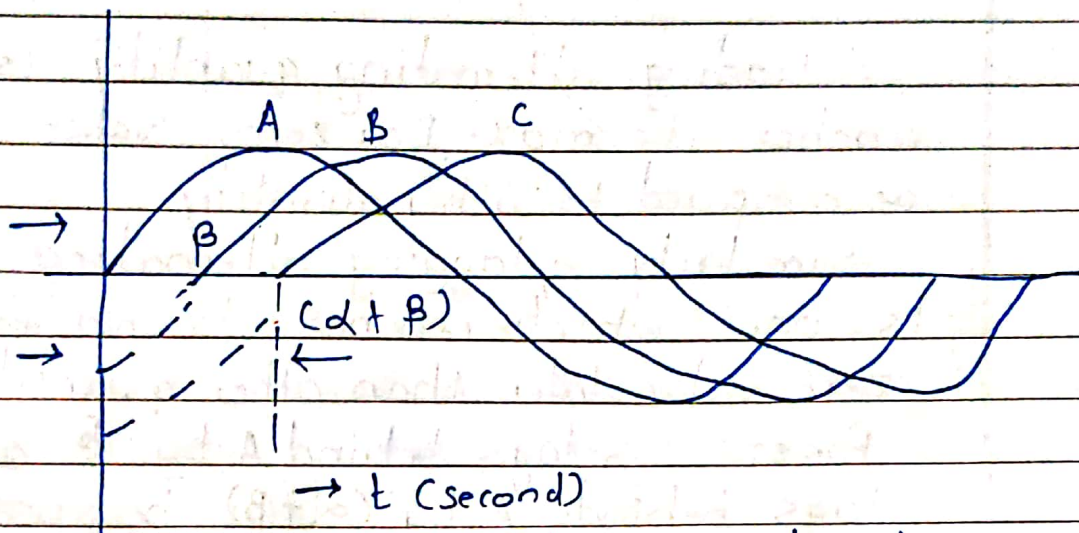 A B C
β
(α + β)
→ t (second)